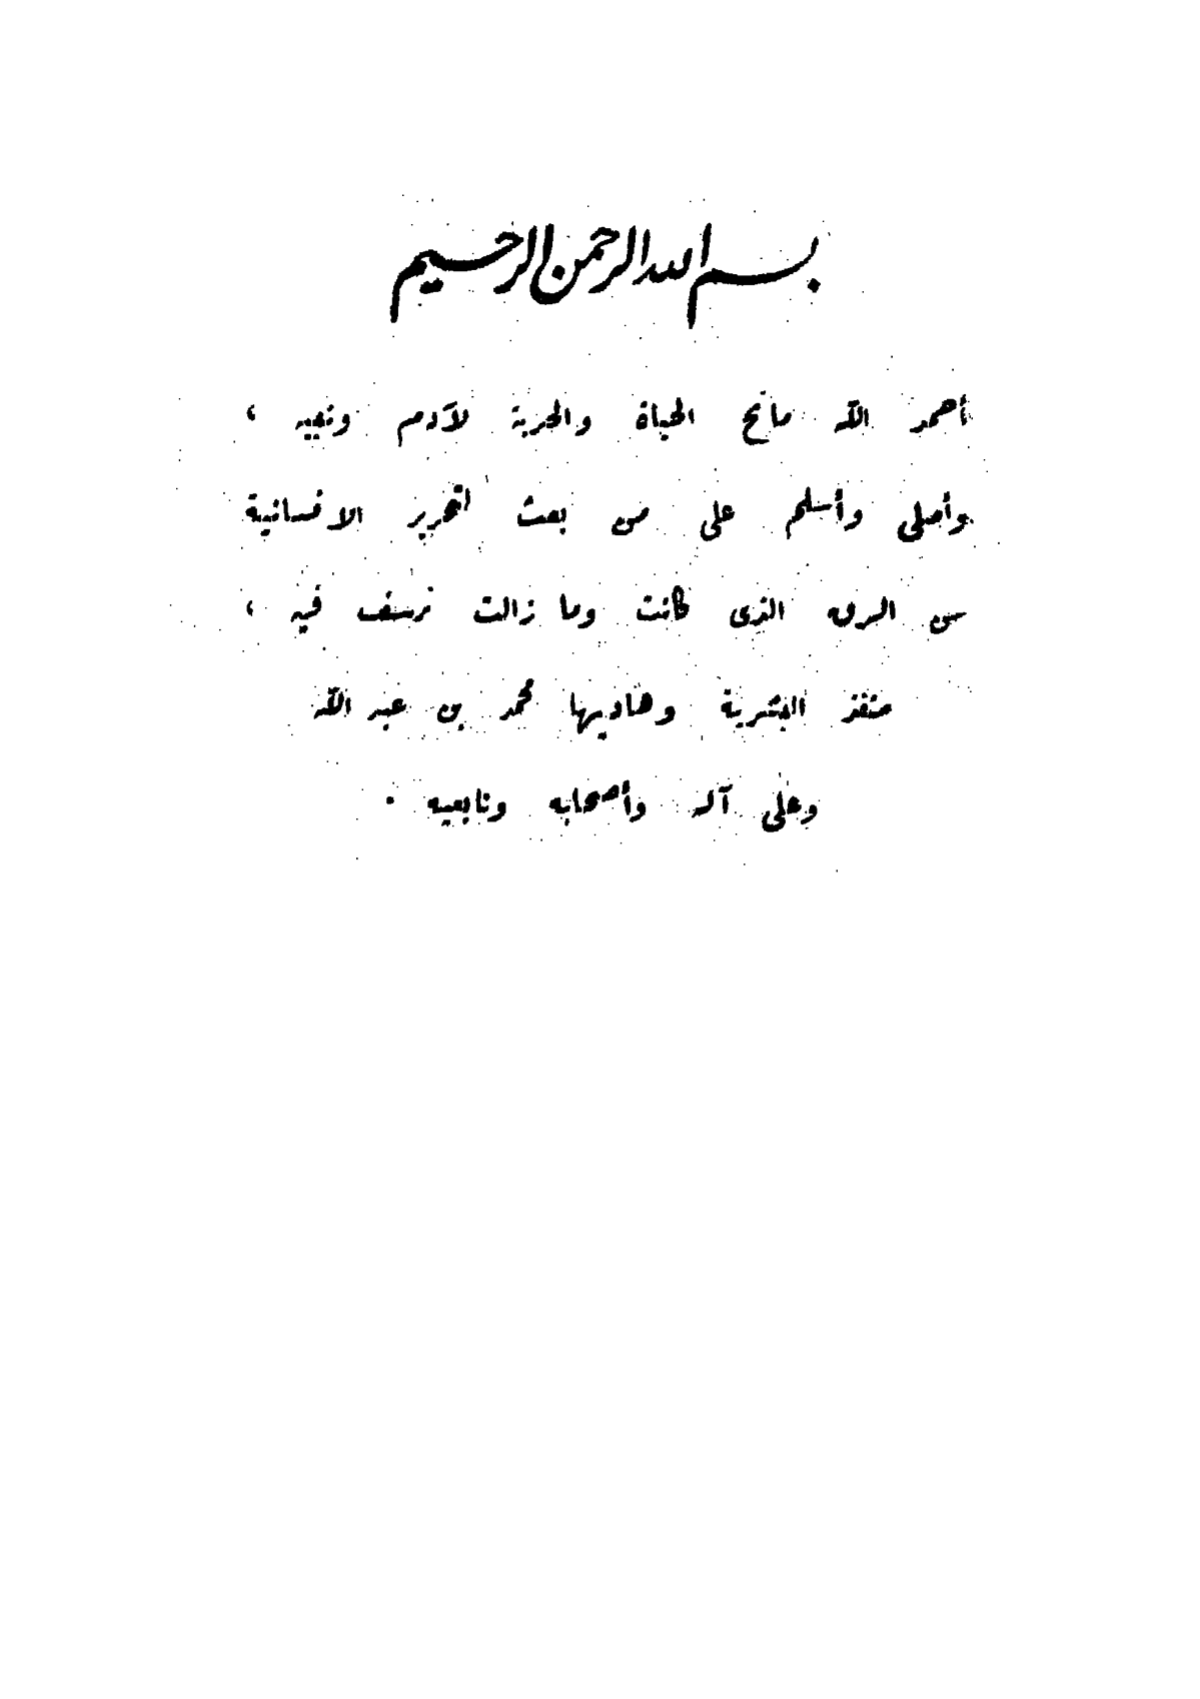 بسم الله الرحمن الرحيم
أحمد الله مانح الحياة والحرية لآدم وبنيه ،
وأصلى وأسلم على من بعث لتحرير الانسانية
من الرق الذى كانت وما زالت ترسف فيه ،
منقذ البشرية وهاديها محمد بن عبد الله
وعلى آله وأصحابه وتابعيه .